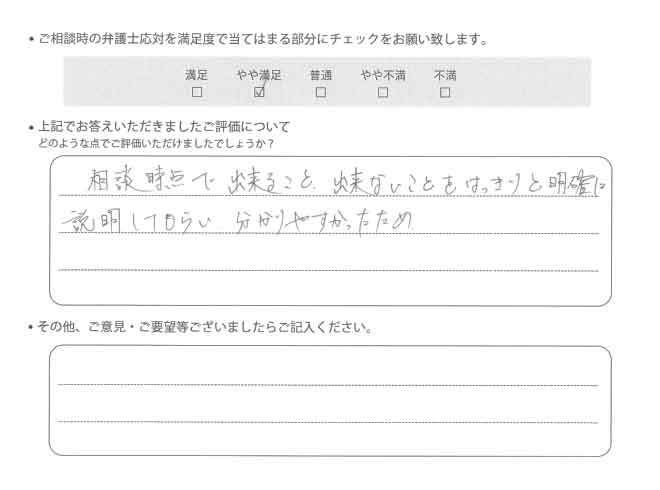 ・ご相談時の弁護士応対を満足度で当てはまる部分にチェックをお願い致します。
満足 やや満足 普通 やや不満 不満
□ ☑ □ □ □
・上記でお答えいただきましたご評価について
どのような点でご評価いただけましたでしょうか？
相談時点で出来ること、出来ないことをはっきりと明確に
説明してもらい 分かりやすかったため
・その他、ご意見・ご要望等ございましたらご記入ください。